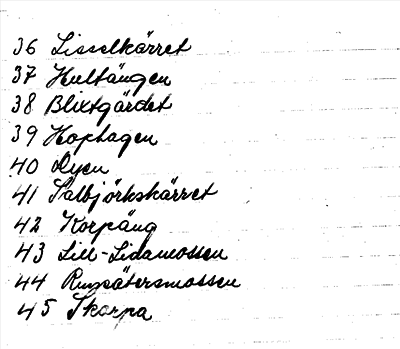 36 Lisselkärret
37 Hultängen
38 Blixtgärdet
39 Hophagen
40 Dyen
41 Salbjörkskärret
42 Korpäng
43 Lill-Lidamossen
44 Ringsätersmossen
45 Skorpa